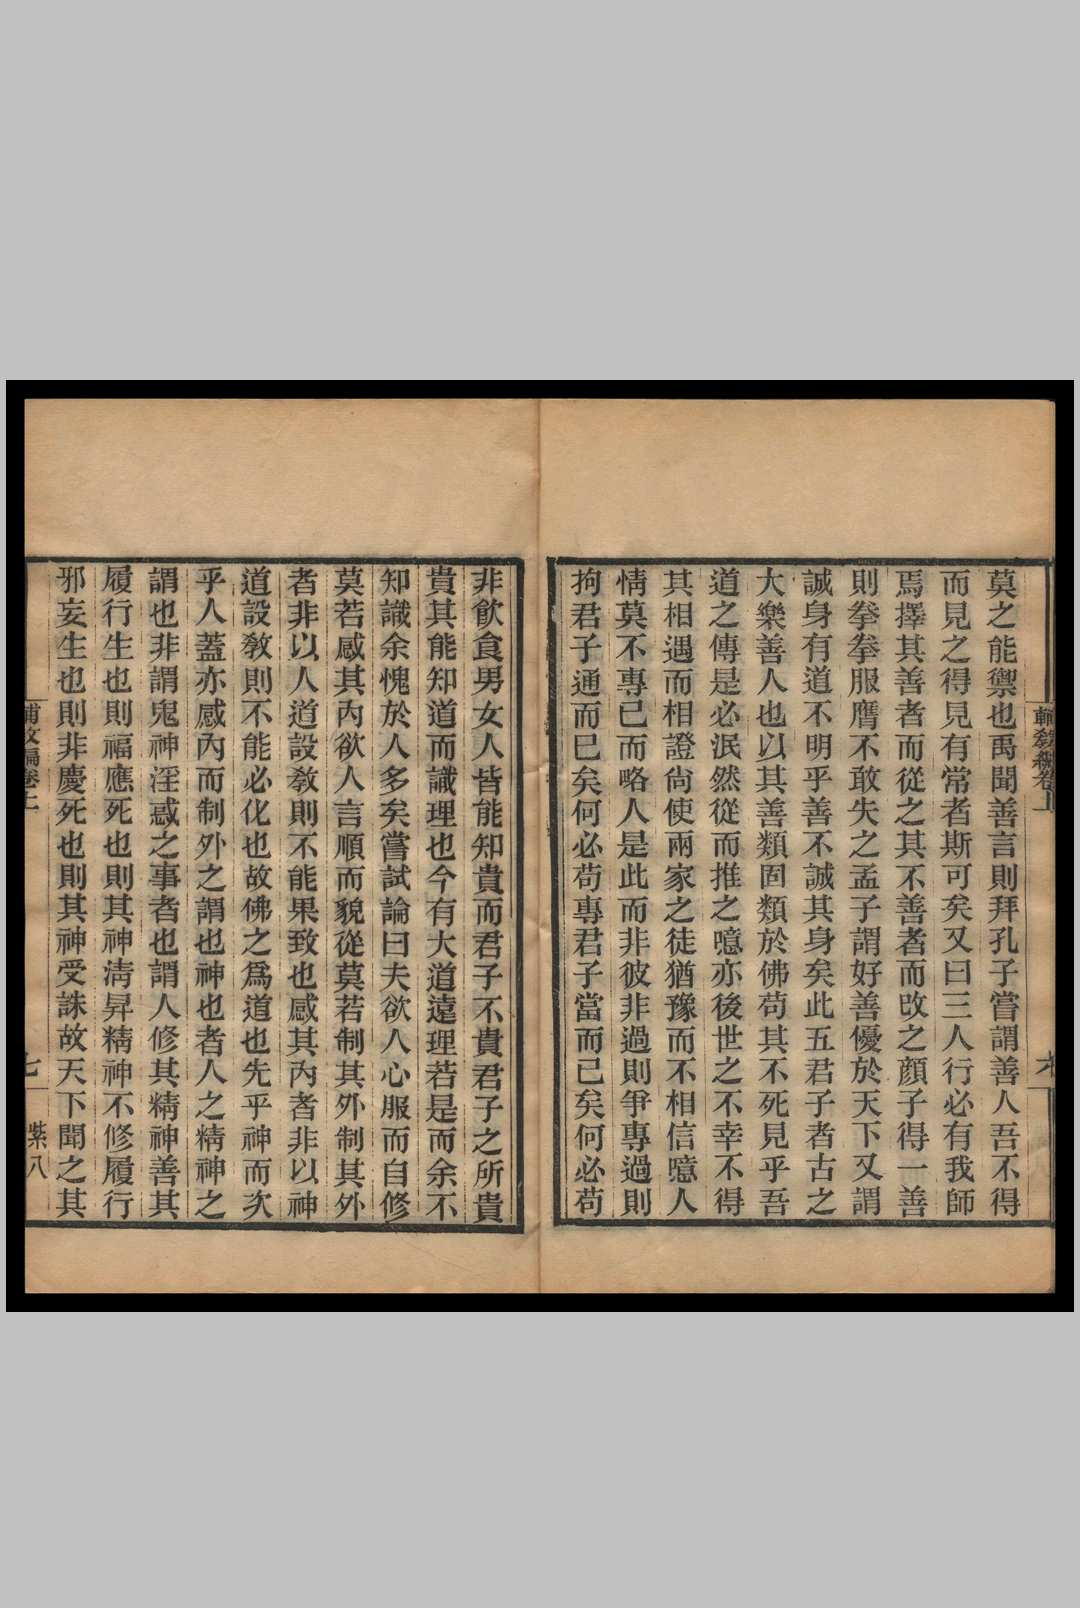 輔教編卷上
莫之能禦也禹聞善言則拜孔子嘗謂善人吾不得
而見之得見有常者斯可矣又曰三人行必有我師
焉擇其善者而從之其不善者而改之顏子得一善
則拳拳服膺不敢失之孟子謂好善優於天下又謂
誠身有道不明乎善不誠其身矣此五君子者古之
大樂善人也以其善類固類於佛苟其不死見乎吾
道之傳是必泯然從而推之噫亦後世之不幸不得
其相遇而相證尙使兩家之徒猶豫而不相信噫人
情莫不專己而略人是此而非彼非過則爭專過則
拘君子通而已矣何必苟專君子當而已矣何必苟
非飮食男女人皆能知貴而君子不貴君子之所貴
貴其能知道而識理也今有大道遠理若是而余不
知識余愧於人多矣嘗試論曰夫欲人心服而自修
莫若感其內欲人言順而貌從莫若制其外制其外
者非以人道設教則不能果致也感其內者非以神
道設教則不能必化也故佛之爲道也先乎神而次
乎人蓋亦感內而制外之謂也神也者人之精神之
謂也非謂鬼神淫惑之事者也謂人修其精神善其
履行生也則福應死也則其神淸昇精神不修履行
邪妄生也則非慶死也則其神受誅故天下聞之其
輔教編卷上
七
紫八